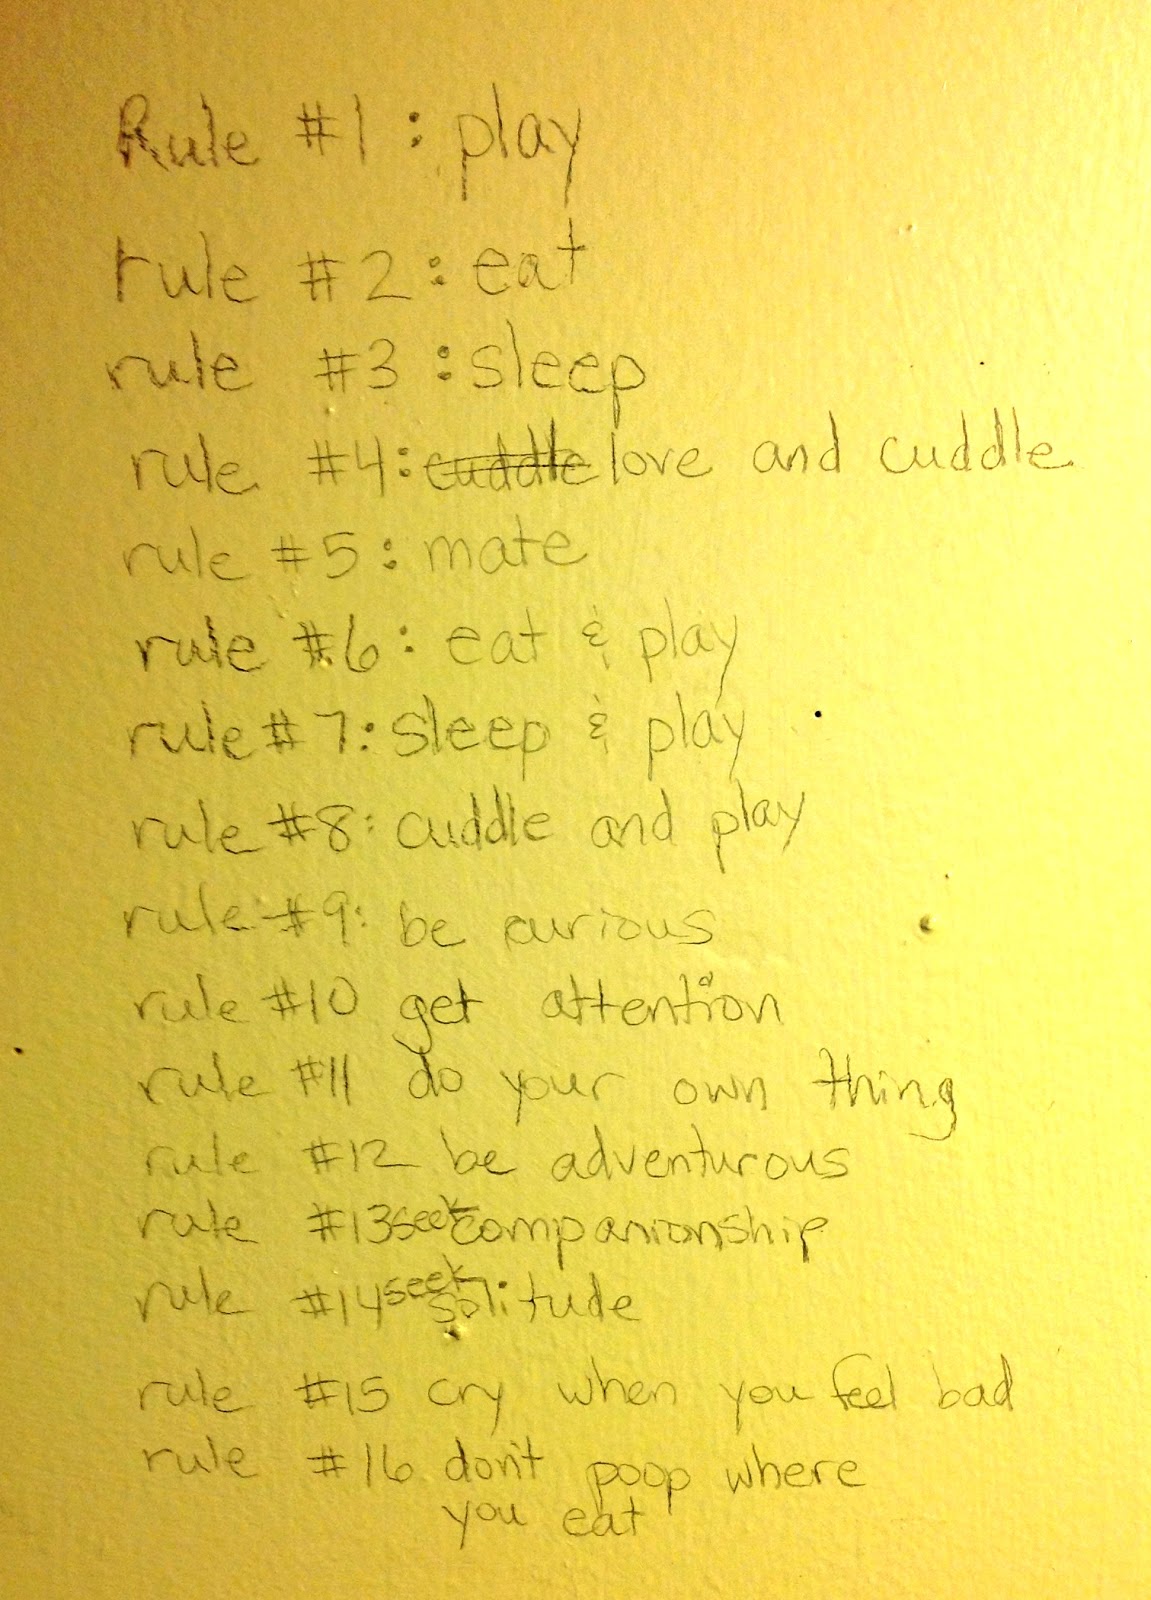 Rule #1: play
rule #2: eat
rule #3: sleep
rule #4: cuddle love and cuddle
rule #5: mate
rule #6: eat & play
rule #7: sleep & play
rule #8: cuddle and play
rule #9: be curious
rule #10 get attention
rule #11 do your own thing
rule #12 be adventurous
rule #13 seek companionship
rule #14 seek solitude
rule #15 cry when you feel bad
rule #16 don't poop where
you eat